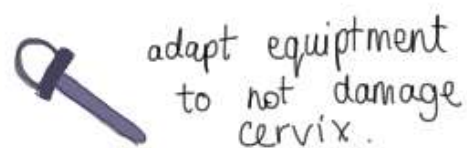 adapt equiptment
to not damage
cervix.